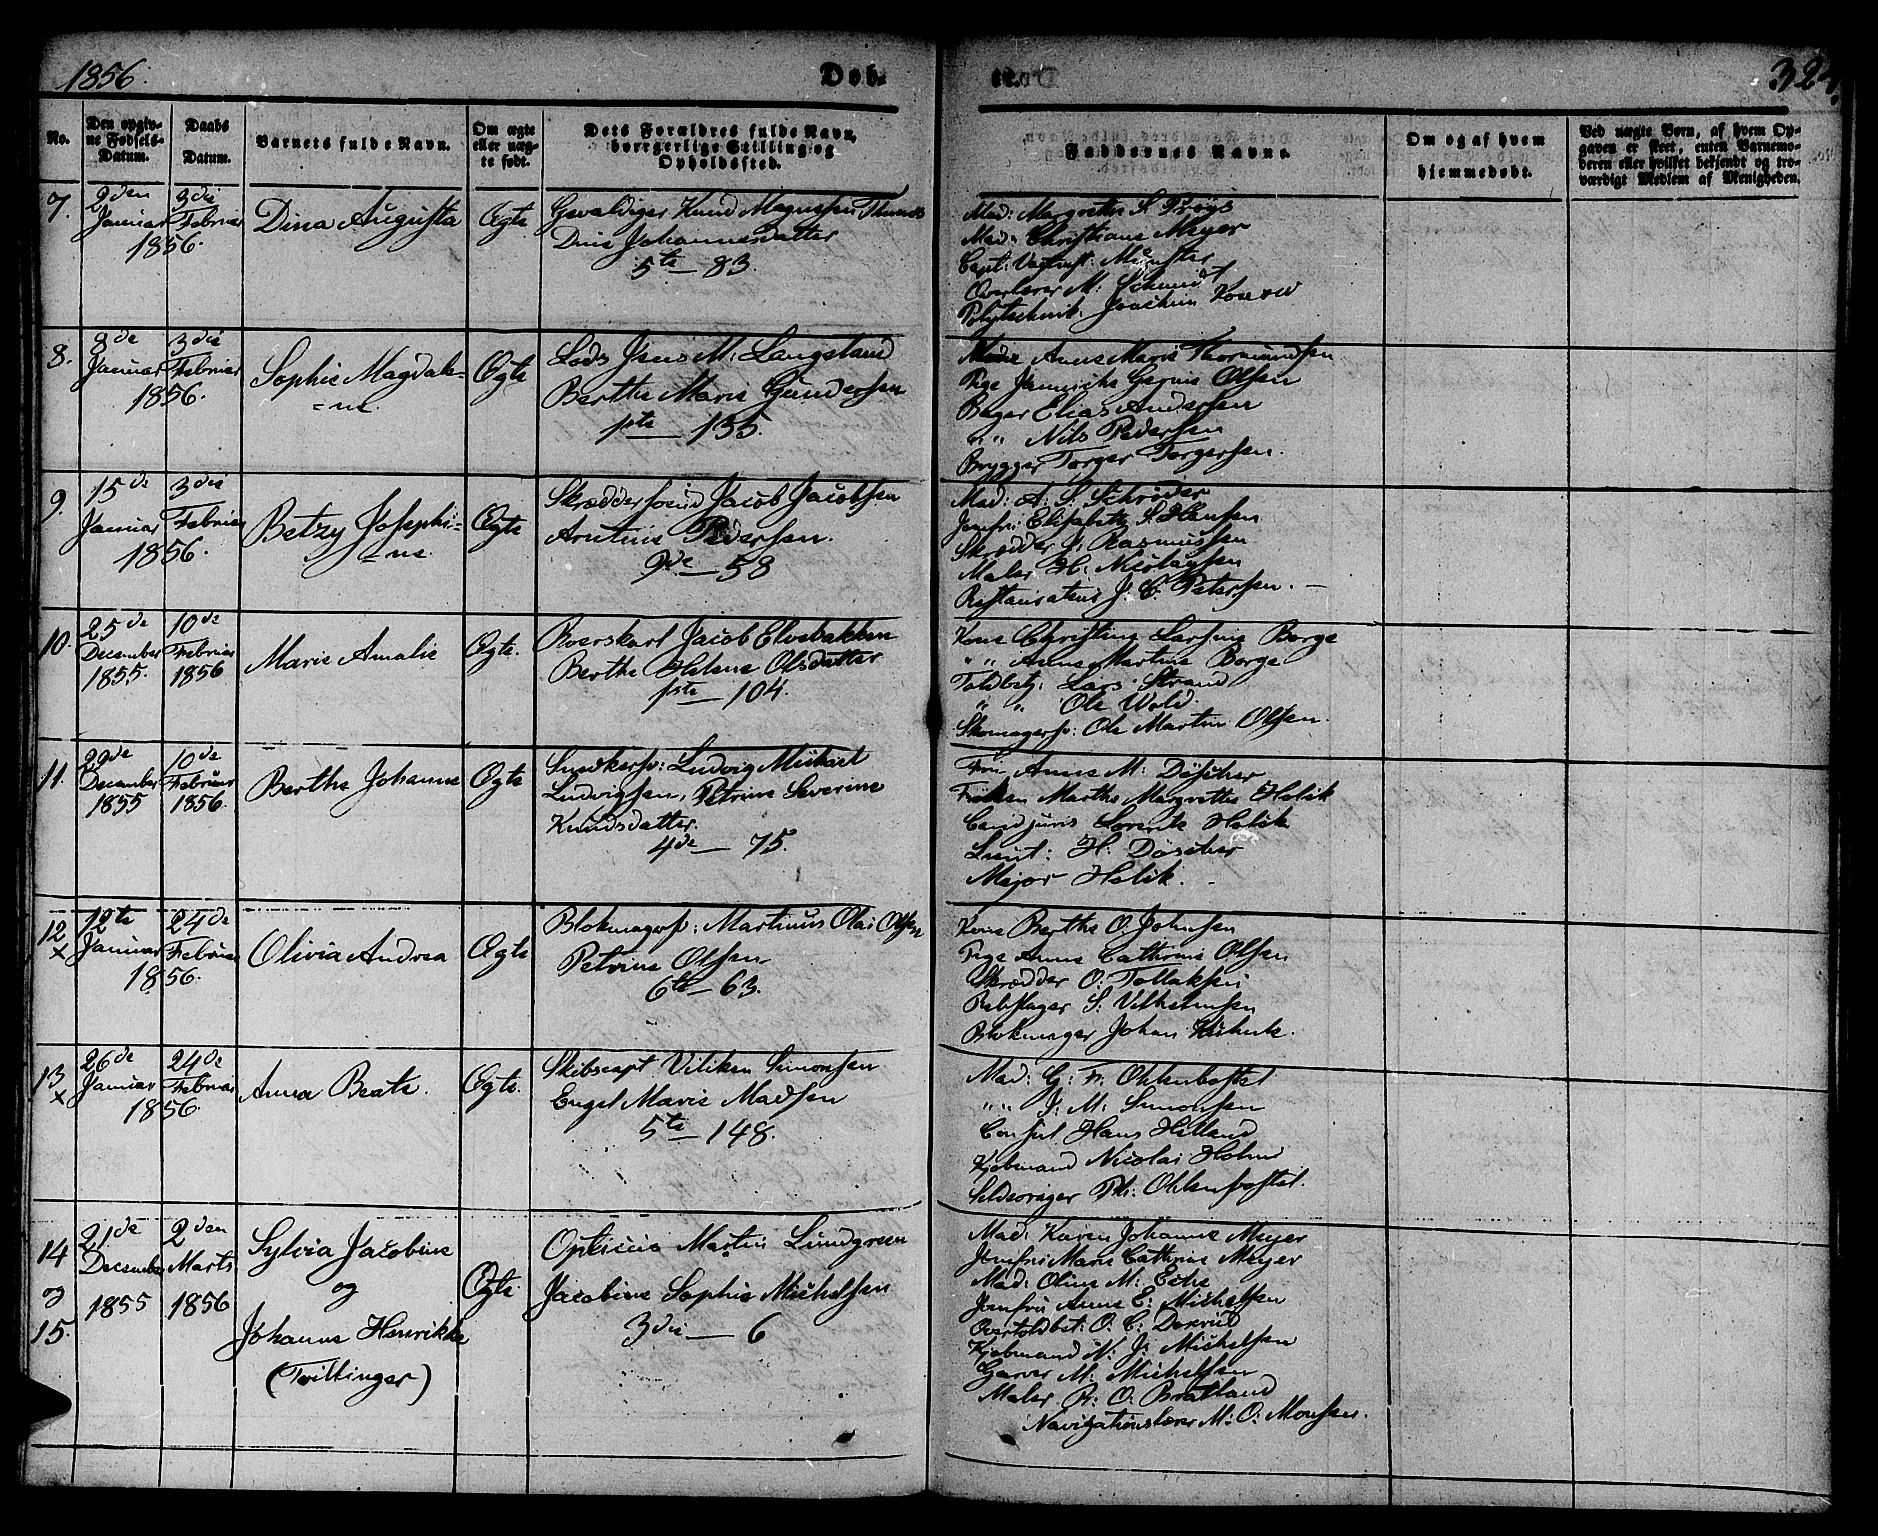 1856.
Døb-
te.
324.
No.
Den opgiv-
ne Fødsels-
Datum.
Daabs
Datum.
Barnets fulde Navn.
Om ægte
eller uæg-
te født.
Dets Forældres fulde Navn,
borgerlige Stilling og
Opholdssted.
Faddernes Navne.
Om og af hvem
hjemmedøbt.
Ved uægte Børn, af hvem Op-
gaven er skeet, enten Barnemo-
deren eller hvilket bekjendt og tro-
værdigt Medlem af Menigheden.
7.
2den
Januar
1856.
3die
Februar
Dina Augusta
Ægte
Gevaldiger Knud Magnussen
Johannesdatter
5te — 83.
Mad: Margrethe S.
Mad: Christiane Meyer
Capt: Münster
Overlærer M: Schmidt
Polytechnik. Joachim Konow
8.
8de
Januar
1856.
3die
Februar
Sophie Magdale=
=ne.
Ægte
Lods Jens M: Langeland
Berthe Marie Gundersen
1ste — 135.
Anne Marie Thormundsen
Pige Olsen
Bager Elias Andersen
" " Nils Pedersen
Brygger Torger Torgersen.
9.
15de
Januar
1856.
3die
Februar
Betzy Josephi=
=ne.
Ægte
Jacob Jacobsen
Pedersen.
9de — 58
Mad: A: S. Schrøder
Jomfru: Elisabeth S. Hansen
Skrædder J. Rasmussen
Maler H: Nicolaysen
Restaurateur J. C. Petersen. —
10.
25de
December
1855.
10de
Februar
1856
Marie Amalie
Ægte.
Roerskarl Jacob Elvebakken
Berthe Helene Olsdatter
1ste — 104.
Kone Christine Larsine Borge
" " Anne Martine Borge
Toldbetj: Lars Strand
" " Ole Wold.
Skomagersv: Ole Martin Olsen.
11.
29de
December
1855
10de
Februar
1856.
Berthe Johanne
Ægte
Snedkersv: Ludvig Michael
Ludvigsen, Petrine Severine
Knudsdatter.
4de — 75.
Fru Anne M: Döscher
Frøken Marthe Margrethe Helik
Cand juris Helik
Lieut: H: Döscher
Major Helik.
12
x
12te
Januar
1856.
24de
Februar
Olivia Andrea
Ægte
Blokmagersv: Martinus Olai Olsen
Petrine Olsen
6te — 63.
Kone Berthe O. Johnsen
Pige Anne Cathrine Olsen
Skrædder O: Tollaksen
Rebslager S. Vilhelmsen
Blokmager Johan
13
x
26de
Januar
1856.
24de
Februar
Anna Beate.
Ægte.
Skibscapt Simonsen
Engel Marie Madsen
5te — 148.
Mad: G: Fr: Ohlenbostel
" " J: M: Simonsen
Consul Hans Helland
Kjøbmand Nicolai Holm
Seldeorager Ohlenbostel.
14
og
15.
21de
December
1855
2den
Marts
1856
Sylvia Jacobine
og
Johanne Henrikke
(Tvillinger)
Ægte.
Opticus Martin Lundgreen
Jacobine Sophie Michelsen
3die — 6
Mad: Karen Johanne Meyer
Jomfru Marie Cathrine Meyer
Mad: Oline M: Eche
Jomfru Anne E: Michelsen
Overtoldbet: O: C:
Kjøbmand N: J: Michelsen
Garver M: Michelsen
Maler R: O: Bratland
Navigationslærer M: O: Monsen.